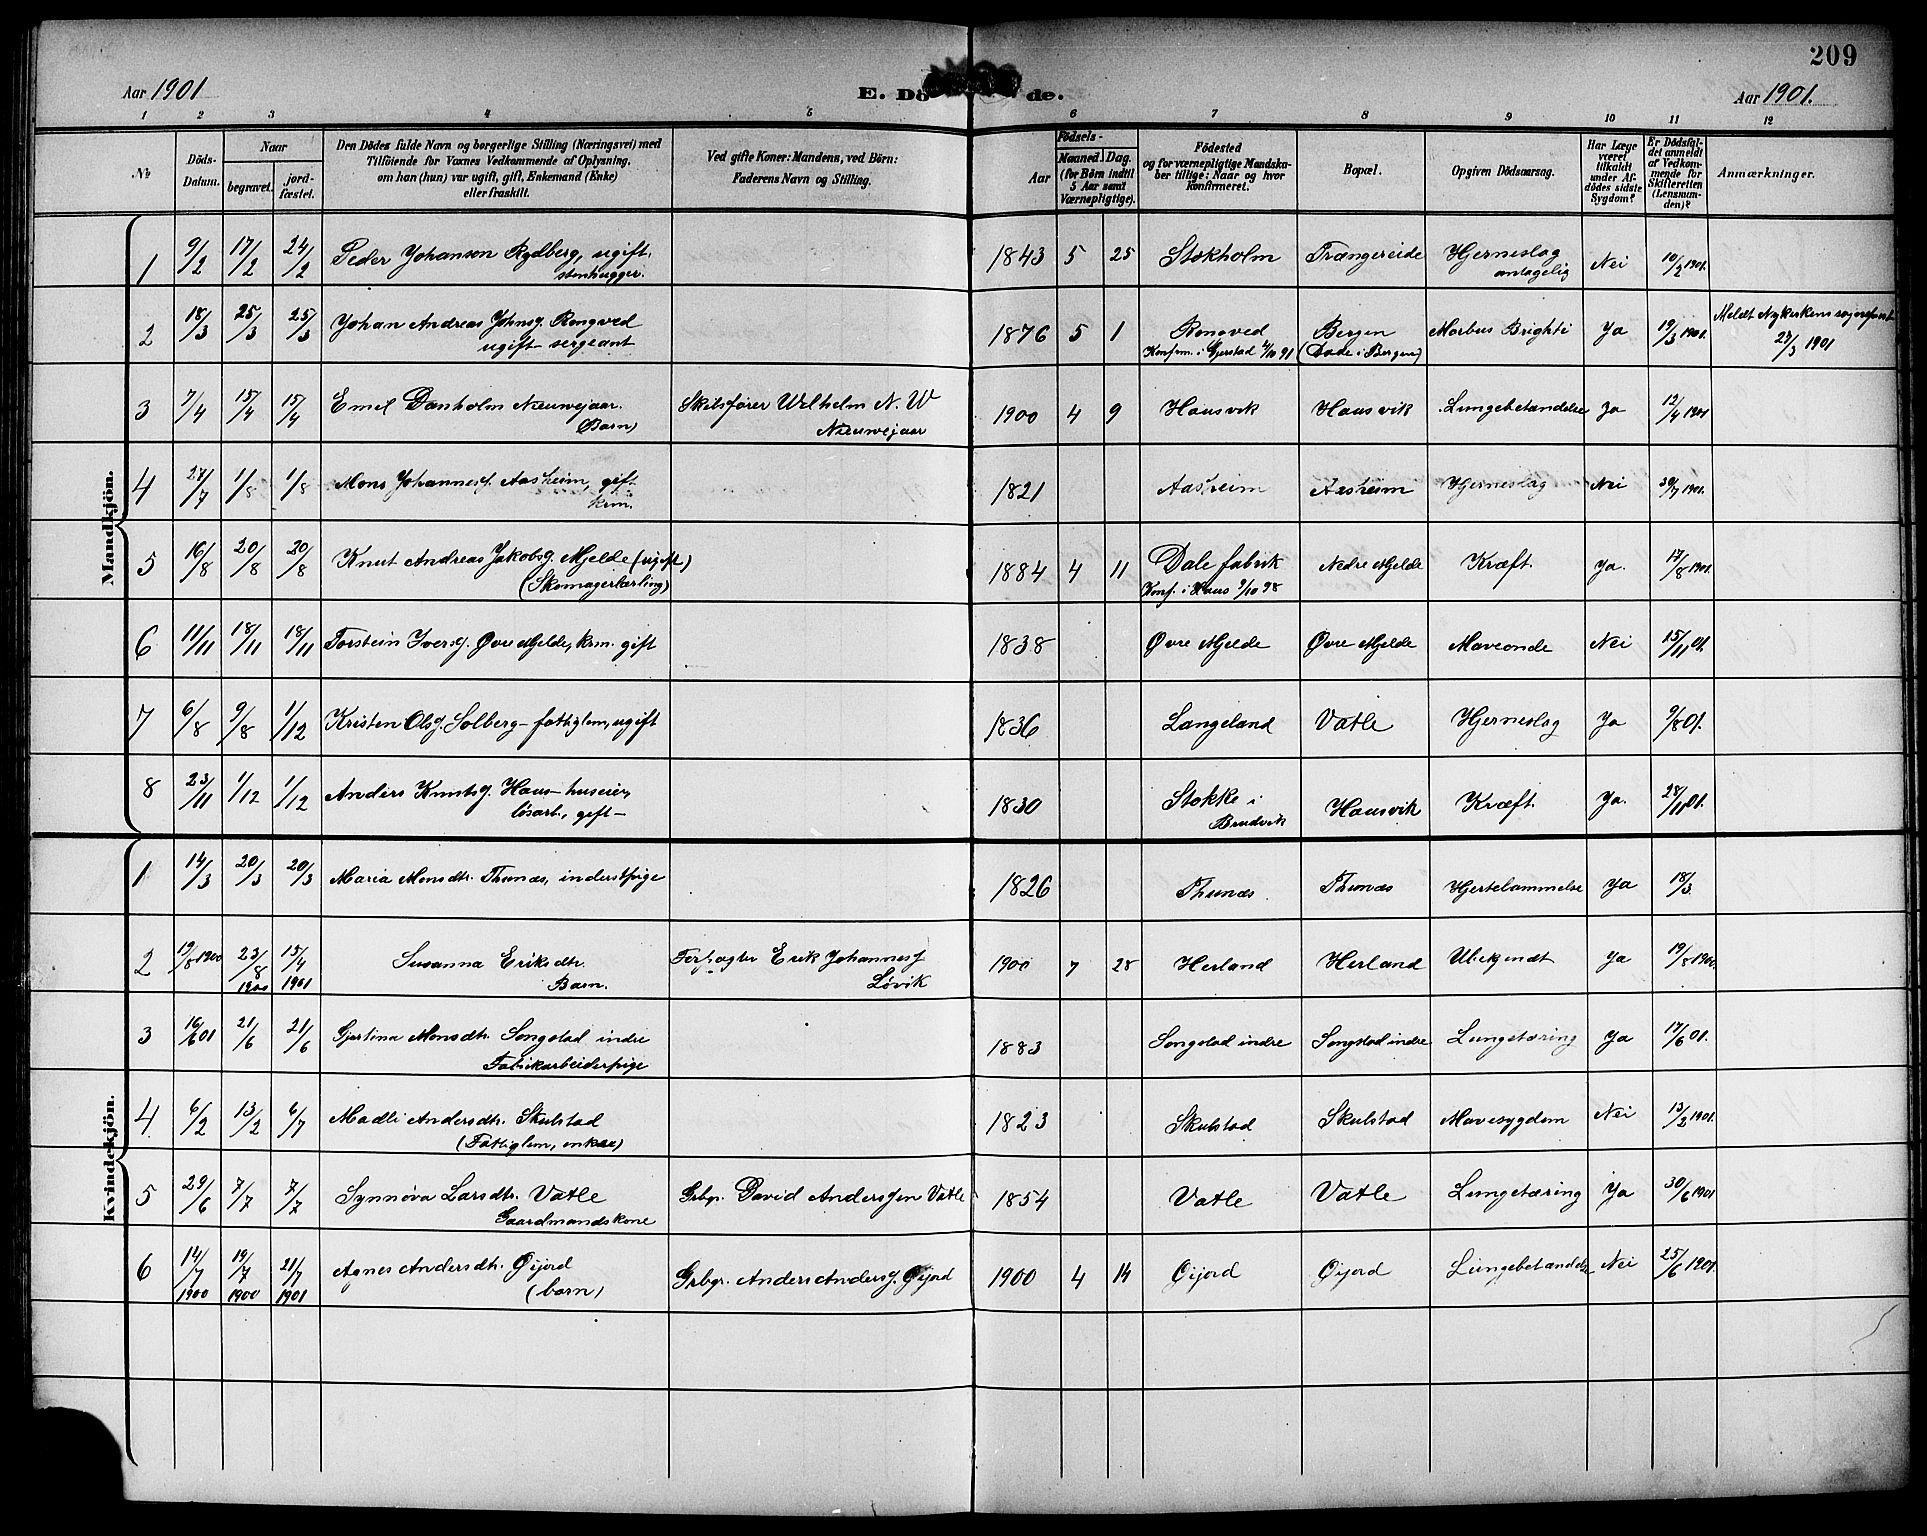 209
Aar 1901
E. Dö de.
Aar 1901.
1 2 3 4 5 6 7 8 9 10 11 12
№
Döds-
Datum.
Naar
begravet.
jord-
fæstet.
Den Dödes fulde Navn og borgerlige Stilling (Næringsvei) med
Tilföiende for Voxnes Vedkommende af Oplysning,
om han (hun) var ugift, gift, Enkemand (Enke)
eller fraskilt.
Ved gifte Koner: Mandens, ved Börn:
Faderens Navn og Stilling.
Födsels-
Aar
Maaned. Dag.
(for Börn indtil
5 Aar samt
Værnepligtige).
Födested
og for værnepligtige Mandska-
ber tillige: Naar og hvor
konfirmeret.
Bopæl.
Opgiven Dödsaarsag.
Har Læge
været
tilkaldt
under Af-
dödes sidste
Sygdom?
Er Dödsfal-
det anmeldt
af Vedkom-
mende for
Skifteretten
(Lensman-
den)?
Anmærkninger.
Mandkjön.
1 9/2 17/2 24/2 Peder Johanson Rydberg, ugift, 1843 5 25 Stokholm Trængereide Hjerneslag Nei 10/2 1901.
stenhugger. antagelig
2 18/3 25/3 25/3 Johan Andreas Johnsg. Rongved 1876 5 1 Rongved Bergen Morbus Brighti Ja 19/3 1901. Meldt Nykirkens sognepræst
ugift sergeant Konfirm. i Gjerstad 4/10 91 (Døde i Bergen) 27/3 1901
3 7/4 15/4 15/4 Emil Danholm Nieuwejaar. Skibsfører Wilhelm N. W 1900 4 9 Hausvik Hausvik Lungebetændelse Ja 12/4 1901
(Barn) Nieuwejaar
4 27/7 1/8 1/8 Mons Johannesg. Aasheim, gift 1821 Aasheim Aasheim Hjerneslag Nei 30/7 1901.
krm.
5 16/8 20/8 20/8 Knut Andreas Jakobsg. Mjelde (ugift) 1884 4 11 Dale fabrik Nedre Mjelde Kræft. Ja. 17/8 1901.
(Skomagerlærling) Konf. i Haus 9/10 98
6 11/11 18/11 18/11 Torstein Iversg. Øvre Mjelde, krm. gift 1838 Øvre Mjelde Øvre Mjelde Maveonde Nei 15/11 01.
7 6/8 9/8 1/12 Kristen Olsg. Solberg - fattiglem, ugift 1836 Langeland Vatle Hjerneslag Ja 9/8 01.
8 23/11 1/12 1/12 Anders Knutsg. Haus - huseier, 1830 Stokke i Hausvik Kræft. Ja. 28/11 01.
løsarb., gift - Brudvik
Kvindekjön.
1 14/3 20/3 20/3 Maria Monsdtr. Thunæs, inderstpige 1826 Thunæs Thunæs Hjertelammelse Ja 18/3.
2 19/8 1900 23/8 1900 15/4 1901 Susanna Eriksdtr. Forpagter Erik Johannesg 1900 7 28 Herland Herland Ubekjendt Ja 19/8 1900.
Barn. Løvik
3 16/6 01 21/6 21/6 Gjertina Monsdtr. Songstad indre 1883 Songstad indre Songstad indre Lungetæring Ja 17/6 01.
Fabrikarbeiderpige
4 6/2 13/2 6/7 Madli Andersdtr. Skulstad 1823 Skulstad Skulstad Mavesygdom Nei 13/2 1901.
(Fattiglem, enke)
5 29/6 7/7 7/7 Synnøva Larsdtr. Vatle Grbgr. David Andersgen Vatle 1854 Vatle Vatle Lungetæring Ja 30/6 1901
Gaardmandskone
6 14/7 1900 19/7 1900 21/7 1901 Agnes Andersdtr. Øijord Grbgr. Anders Andersg. Øijord 1900 4 14 Øijord Øijord Lungebetændelse Nei 25/6 1901.
(barn)